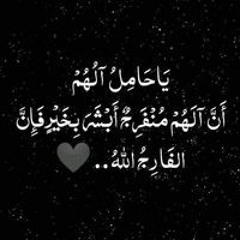 يَاحَامِلُ آلهُمْ
أَنَّ آلَهُمْ مُنْفَرِجٌ أَبْشَرَ بِخَيْرٍ فَإِنَّ
الفَارِجُ اللهُ..